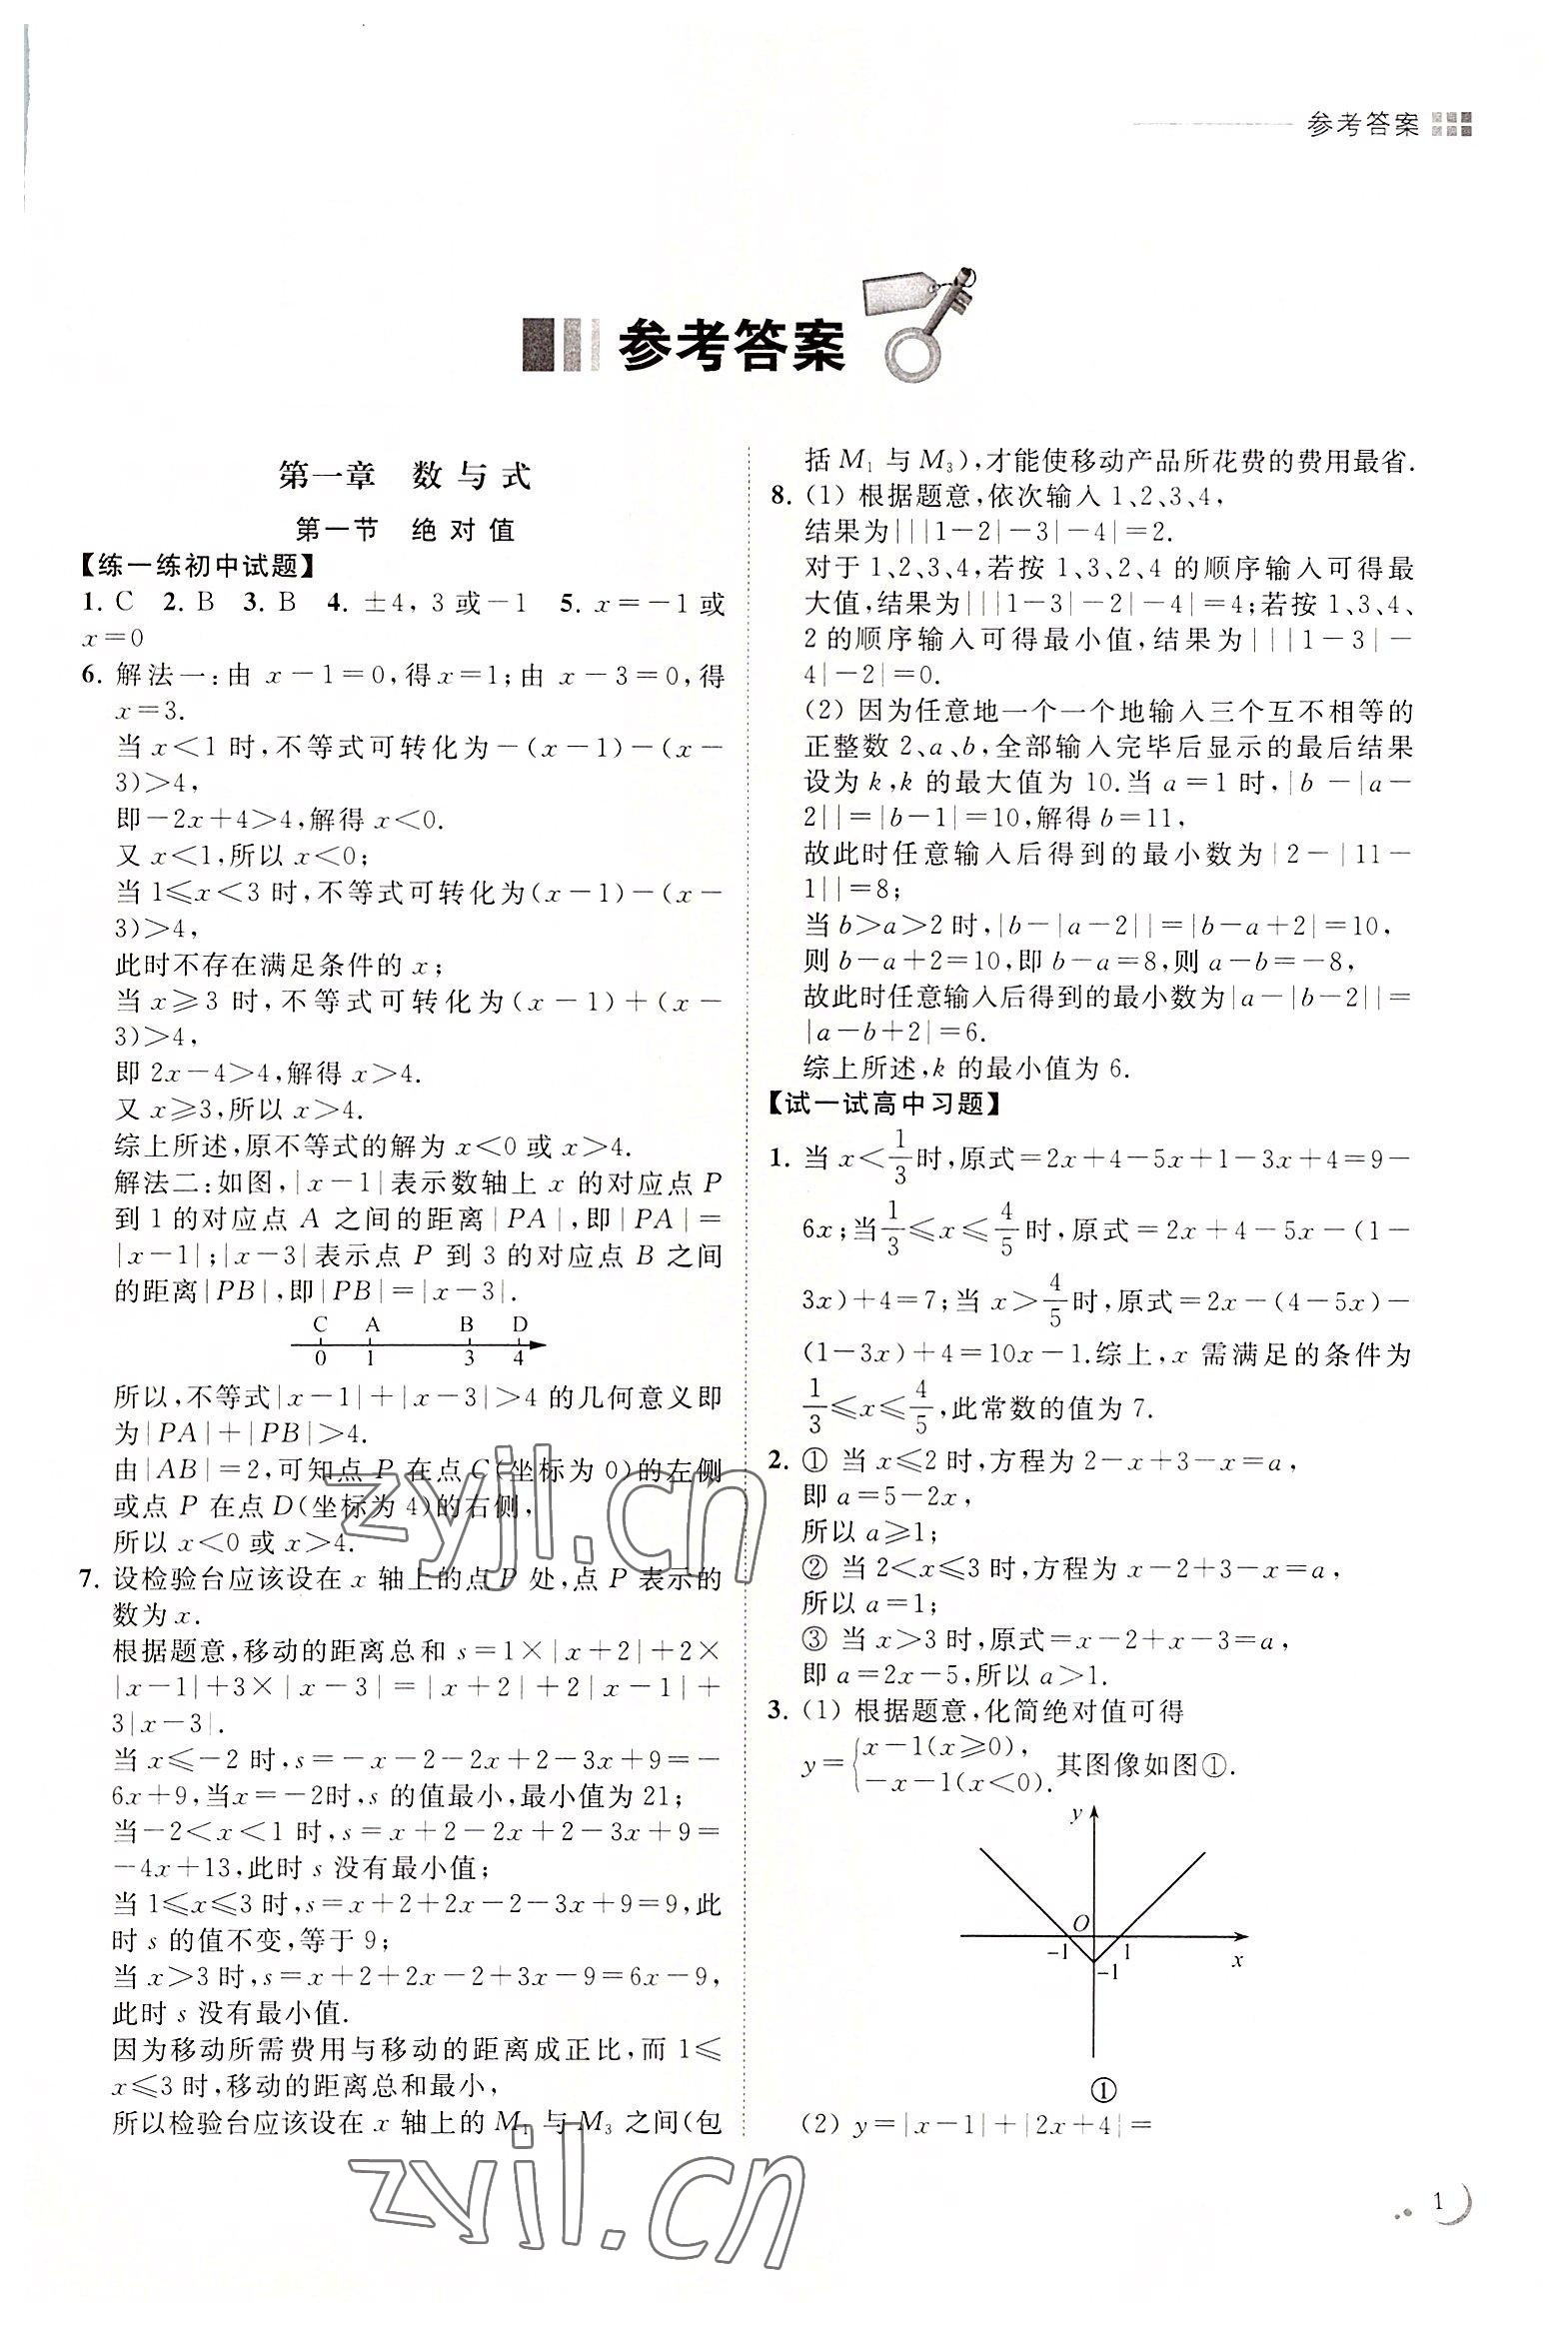 参考答案
参考答案
第一章　数与式
第一节　绝对值
【练一练初中试题】
1. C　2. B　3. B　4. ±4, 3或-1　5. x=-1或
x=0
6. 解法一:由 x-1=0,得x=1;由 x-3=0,得
x=3.
当 x<1 时,不等式可转化为-(x-1)-(x-
3)>4,
即-2x+4>4,解得 x<0.
又 x<1,所以 x<0;
当 1≤x<3 时,不等式可转化为(x-1)-(x-
3)>4,
此时不存在满足条件的 x;
当 x≥3 时,不等式可转化为(x-1)+(x-
3)>4,
即 2x-4>4,解得 x>4.
又 x≥3,所以 x>4.
综上所述,原不等式的解为 x<0 或 x>4.
解法二:如图,|x-1|表示数轴上 x 的对应点 P
到1的对应点 A 之间的距离|PA|,即|PA|=
|x-1|;|x-3|表示点 P 到 3 的对应点 B 之间
的距离|PB|,即|PB|=|x-3|.
C A B D
0 1 3 4
所以,不等式|x-1|+|x-3|>4 的几何意义即
为|PA|+|PB|>4.
由|AB|=2,可知点 P 在点 C(坐标为 0)的左侧
或点 P 在点 D(坐标为 4)的右侧,
所以 x<0 或 x>4.
7. 设检验台应该设在 x 轴上的点 P 处,点 P 表示的
数为 x.
根据题意,移动的距离总和 s=1×|x+2|+2×
|x-1|+3×|x-3|=|x+2|+2|x-1|+
3|x-3|.
当 x≤-2 时,s=-x-2-2x+2-3x+9=-
6x+9,当x=-2时,s 的值最小,最小值为 21;
当-2<x<1 时,s=x+2-2x+2-3x+9=
-4x+13,此时 s 没有最小值;
当 1≤x≤3 时,s=x+2+2x-2-3x+9=9,此
时 s 的值不变,等于 9;
当 x>3 时,s=x+2+2x-2+3x-9=6x-9,
此时 s 没有最小值.
因为移动所需费用与移动的距离成正比,而 1≤
x≤3 时,移动的距离总和最小,
所以检验台应该设在 x 轴上的 M₁ 与 M₃ 之间(包
括 M₁ 与 M₃),才能使移动产品所花费的费用最省.
8. (1) 根据题意,依次输入 1、2、3、4,
结果为|||1-2|-3|-4|=2.
对于 1、2、3、4,若按 1、3、2、4 的顺序输入可得最
大值,结果为|||1-3|-2|-4|=4;若按 1、3、4、
2 的顺序输入可得最小值,结果为|||1-3|-
4|-2|=0.
(2) 因为任意地一个一个地输入三个互不相等的
正整数 2、a、b,全部输入完毕后显示的最后结果
设为 k,k 的最大值为 10.当 a=1 时,|b-|a-
2||=|b-1|=10,解得 b=11,
故此时任意输入后得到的最小数为|2-|11-
1||=8;
当 b>a>2 时,|b-|a-2||=|b-a+2|=10,
则 b-a+2=10,即 b-a=8,则 a-b=-8,
故此时任意输入后得到的最小数为|a-|b-2||=
|a-b+2|=6.
综上所述,k 的最小值为 6.
【试一试高中习题】
1. 当 x<1/3时,原式=2x+4-5x+1-3x+4=9-
6x;当1/3≤x≤4/5时,原式=2x+4-5x-(1-
3x)+4=7;当 x>4/5时,原式=2x-(4-5x)-
(1-3x)+4=10x-1.综上,x 需满足的条件为
1/3≤x≤4/5,此常数的值为 7.
2. ① 当 x≤2 时,方程为 2-x+3-x=a,
即 a=5-2x,
所以 a≥1;
② 当 2<x≤3 时,方程为 x-2+3-x=a,
所以 a=1;
③ 当 x>3 时,原式=x-2+x-3=a,
即 a=2x-5,所以 a>1.
3. (1) 根据题意,化简绝对值可得
y={x-1(x≥0),
-x-1(x<0). 其图像如图①.
y
O
-1 1 x
-1
①
(2) y=|x-1|+|2x+4|=
1
zyjl.cn
zyjl.cn